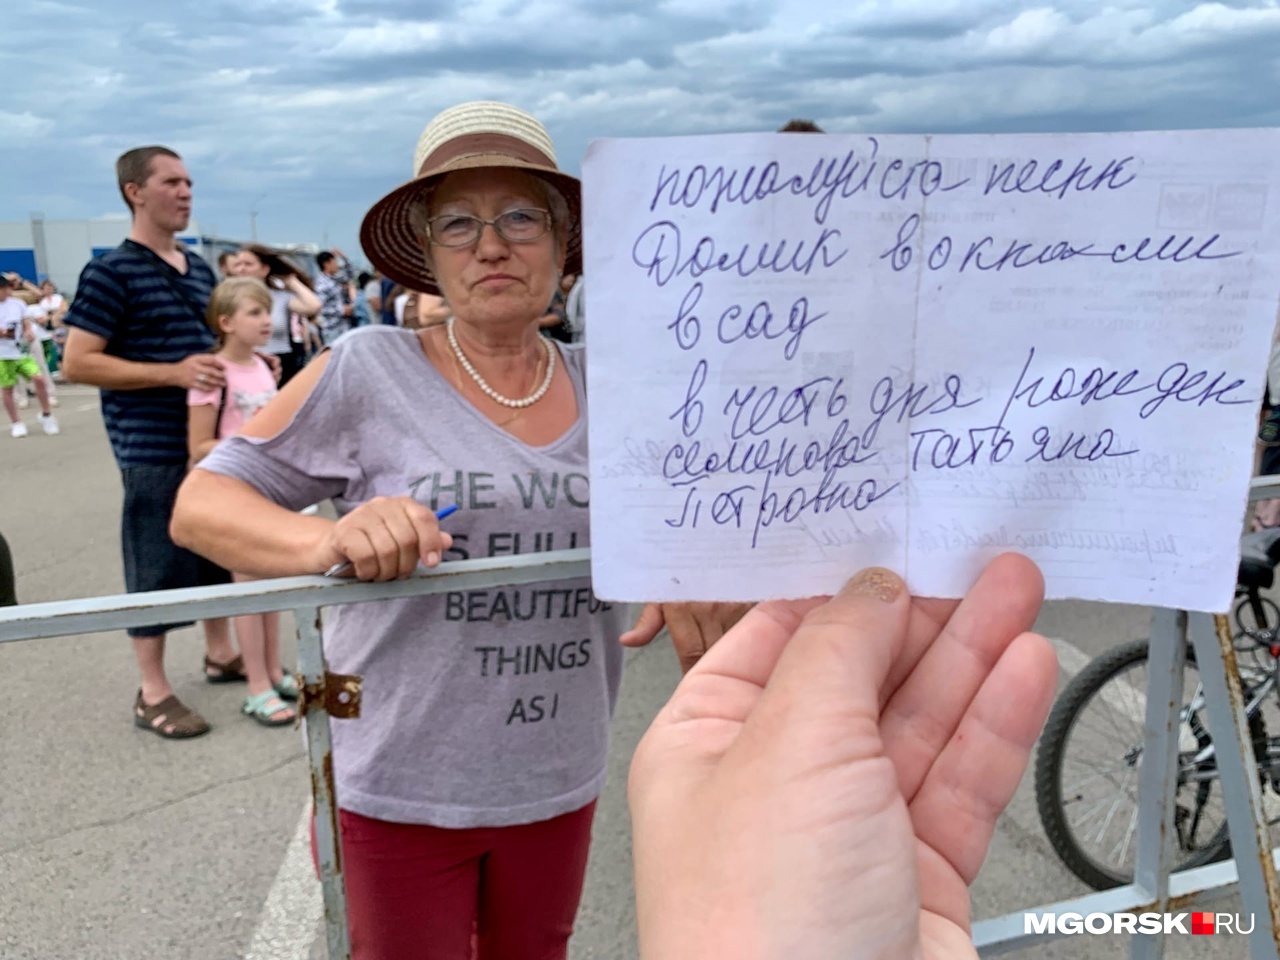 пожалуйста песнк
Домик в окнами
в сад
в честь дня рожеден
семенова Татьяна
Петровна
THE WO
S FULL
BEAUTIFUL
THINGS
AS I
MGORSK RU